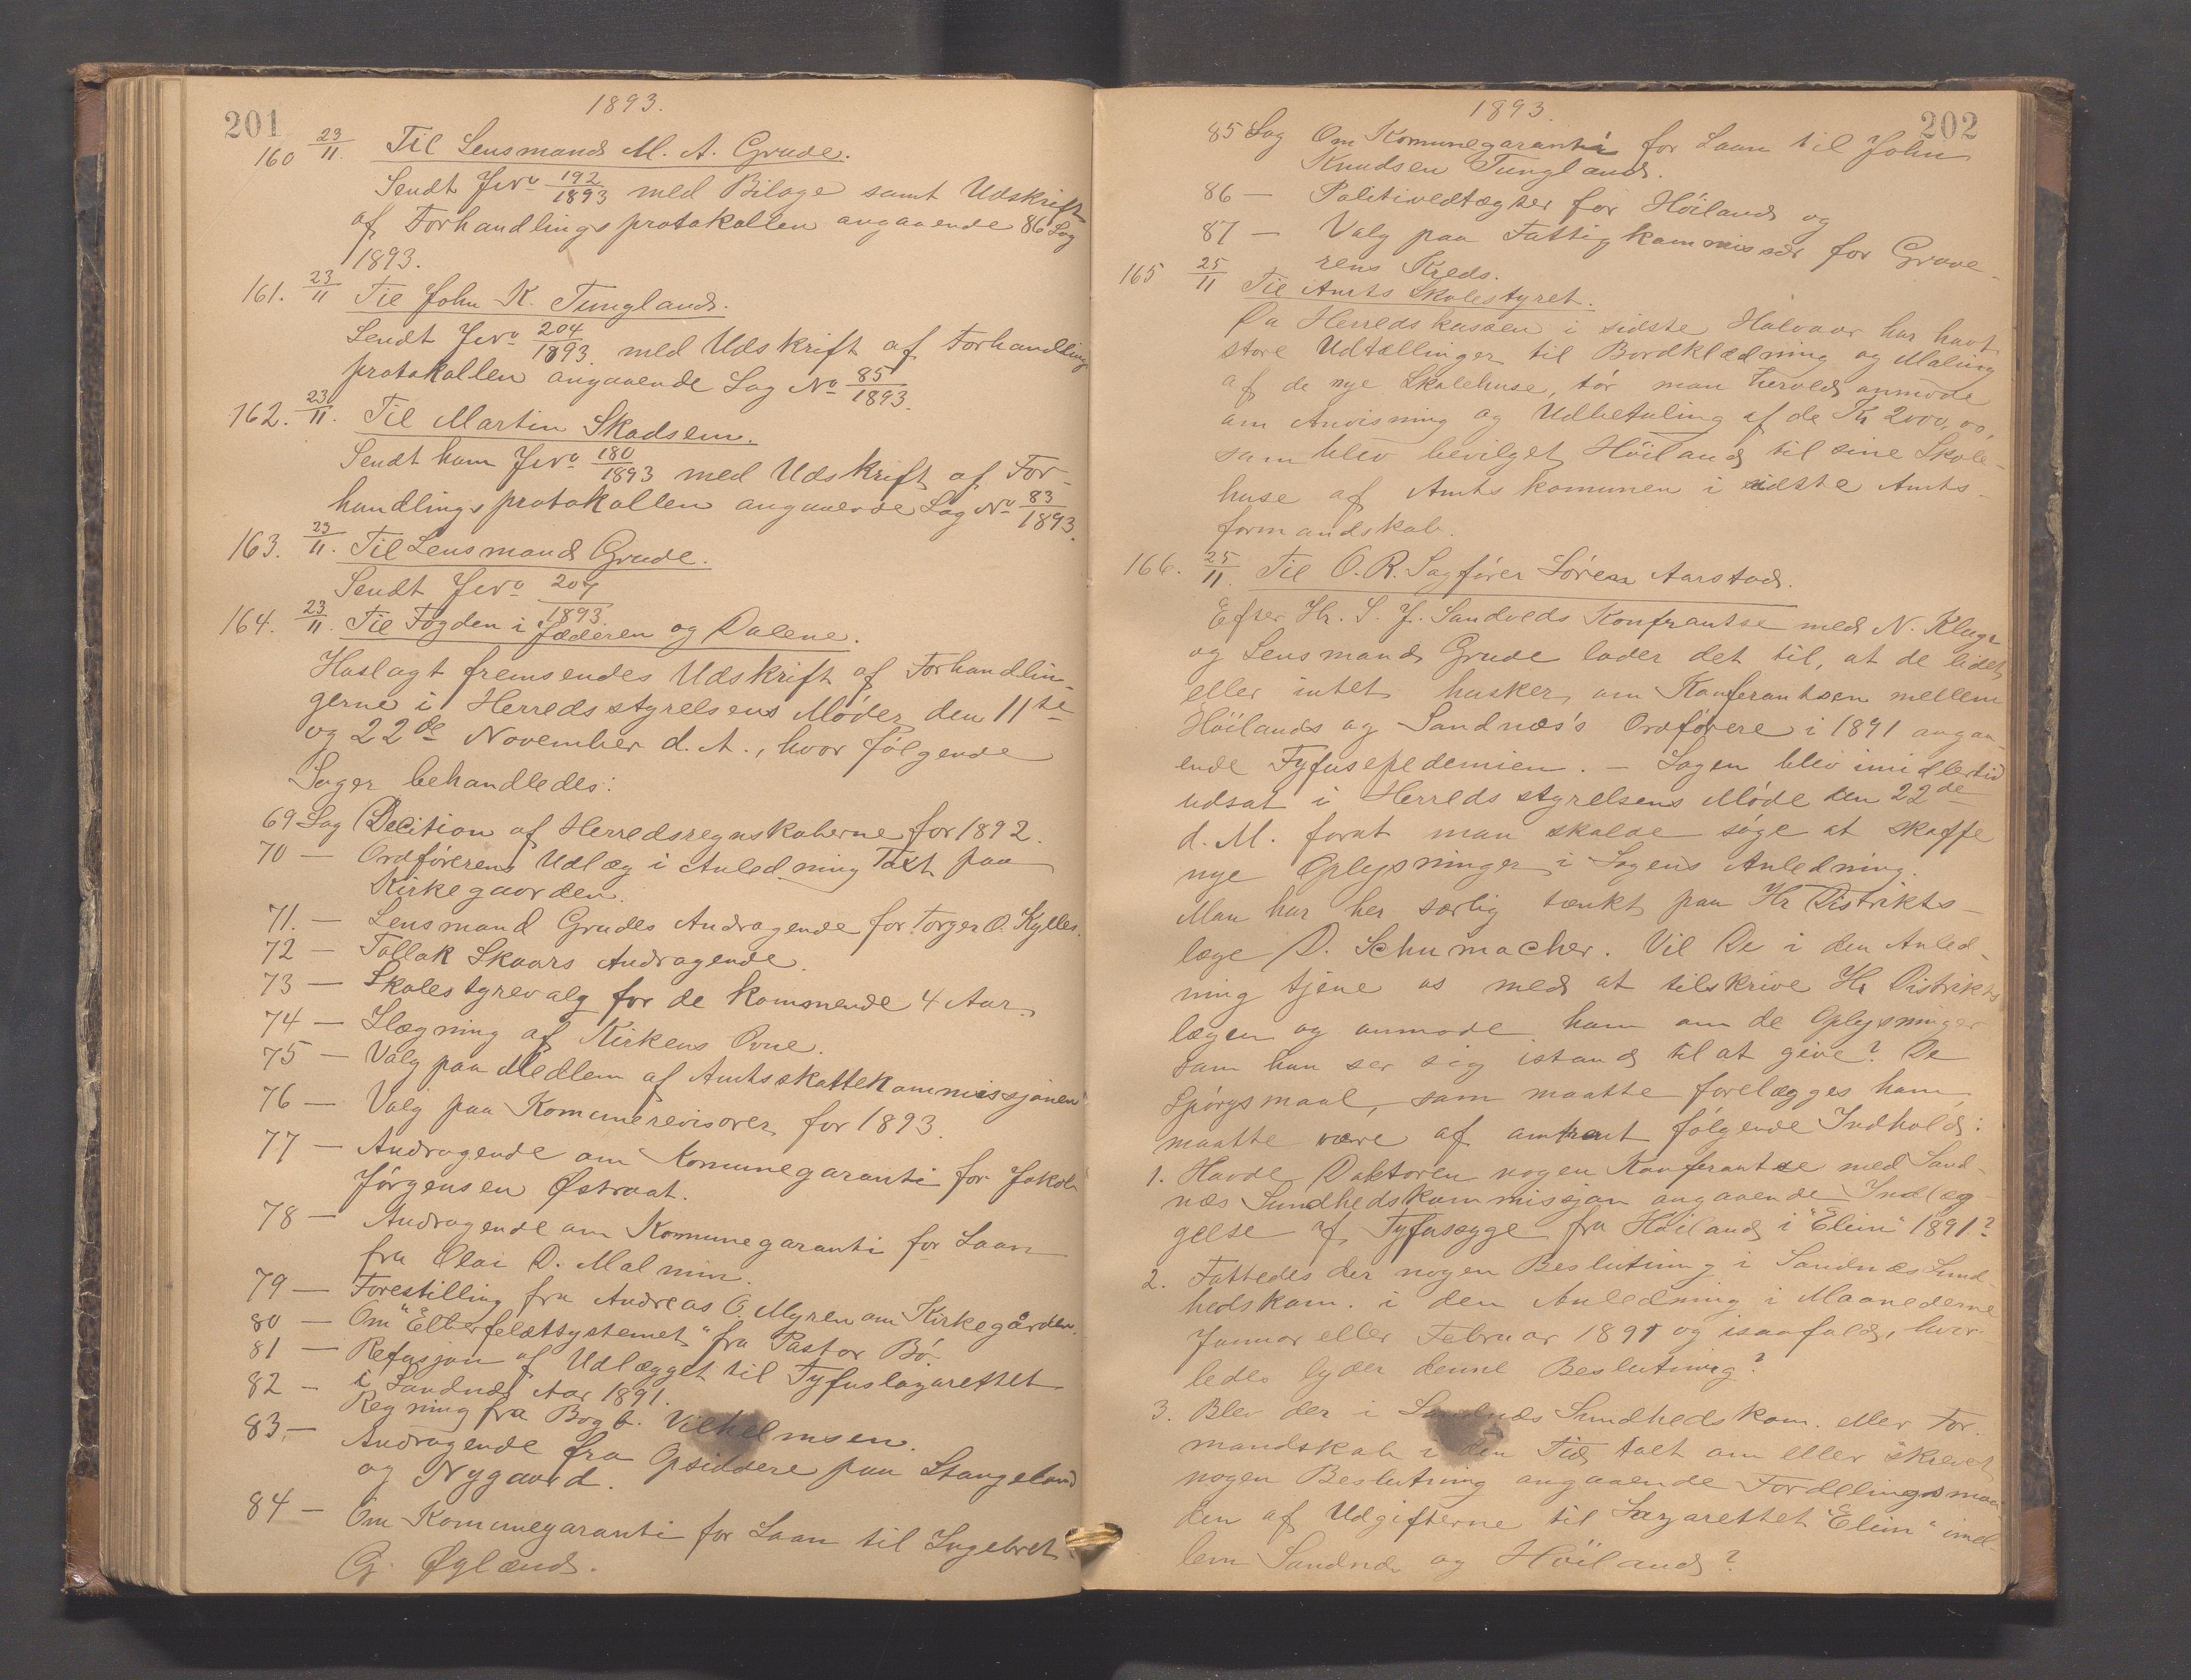 201
1893.
160 23/11. Til Lensmand M. A. Grude.
Sendt Jrno 192/1893 med Bilage samt Udskrift
af Forhandlingsprotokollen angaaende 86 Sag
1893.
161. 23/11 Til John K. Tungland.
Sendt Jrno 204/1893. med Udskrift af Forhandlings
protokollen angaaende Sag No 85/1893.
162. 23/11. Til Martin Skadsem.
Sendt ham Jrno 180/1893 med Udskrift af For-
handlingsprotokollen angaaende Sag No 83/1893.
163. 23/11. Til Lensmand Grude.
Sendt Jrno 207/1893.
164. 23/11. Til Fogden i Jæderen og Dalene.
Hoslagt fremsendes Udskrift af Forhandlin-
gerne i Herredsstyrelsens Møder den 11te
og 22de November d. A., hvor følgende
Sager behandledes:
69 Sag Decition af Herredsregnskaberne for 1892.
70 — Ordførerens Udlæg i Anledning Taxt paa
Kirkegaarden.
71. — Lensmand Grudes Andragende for Torger O. Kylles.
72 — Tollak Skaars Andragende.
73 — Skolestyrevalg for de kommende 4 Aar.
74 — Ilægning af Kirkens Ovne.
75 — Valg paa Medlem af Amtsskattekommissjonen
76 — Valg paa Komunerevisorer for 1893.
77 — Andragende om Komunegaranti for Jakob
Jørgensen Østraat.
78 — Andragende om Komunegaranti for Laan
fra Olai O. Malmin.
79 — Forestilling fra Andreas O. Myren om Kirkegården.
80 — Om "Elberfeldtsystemet" fra Pastor Bö.
81 — Refusjon af Udlægget til Tyfuslazarettet
i Sandnæs Aar 1891.
82 — Regning fra Bogb. Vilhelmsen.
83 — Andragende fra Opsiddere paa Stangeland
og Nygaard.
84 — Om Komunegaranti for Laan til Ingebret
G. Øglænd.
1893.
202
85 Sag Om Komunegaranti for Laan til John
Knudsen Tungland.
86 — Politivedtægter for Höiland og
87 — Valg paa Fattigkommissær for Grave-
rens Kreds.
165 25/11 Til Amts Skolestyret.
Da Herredskassen i sidste Halvaar har havt
store Udtællinger til Bordklædning og Maling
af de nye Skolehuse, tör man herved anmode
om Anvisning og Udbetaling af de Kr 2000,00,
som blev bevilget Höiland til sine Skole-
huse af Amtskomunen i sidste Amts-
formandskab.
166. 25/11. Til O. R. Sagfører Sören Aarstad.
Efter Hr. S. J. Sandveds Konfrantse med N. Kluge
og Lensmand Grude lader det til, at de lidet
eller intet husker om Konferantsen mellem
Höilands og Sandnæs's Ordförere i 1891 angaa-
ende Tyfusepedemien. — Sagen blev imidlertid
udsat i Herredsstyrelsens Möde den 22de
d. M. forat man skulde söge at skaffe
nye Oplysninger i Sagens Anledning.
Man har her særlig tænkt paa Hr Distrikts-
læge D. Schumacher. Vil De i den Anled-
ning tjene os med at tilskrive Hr Distrikts
lægen og anmode ham om de Oplysninger
som han ser sig istand til at give? De
Spörgsmaal, som maatte forelægges ham,
maatte være af omtrent fölgende Indhold:
1. Havde Doktoren nogen Konferantse med Sand-
næs Sundhedskommissjon angaaende Indlæg-
gelse af Tyfussyge fra Höiland i "Elim" 1891?
2. Fattedes der nogen Beslutning i Sandnæs Sund-
hedskom. i den Anledning i Maanederne
Januar eller Februar 1891 og isaafald, hvor-
ledes lyder denne Beslutning?
3. Blev der i Sandnæs Sundhedskom. eller For-
mandskab i den Tid talt om eller skrevet
nogen Beslutning angaaende Fordelingsmaa-
den af Udgifterne til Lazarettet "Elim" imel-
lem Sandnæs og Höiland?